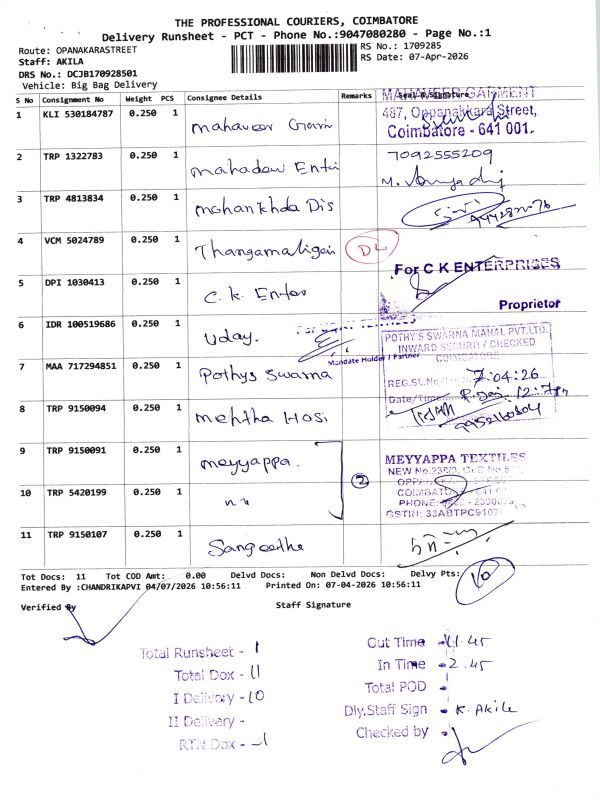 THE PROFESSIONAL COURIERS, COIMBATORE
Delivery Runsheet - PCT - Phone No.:9047080280 - Page No.:1
Route: OPANAKARASTREET
RS No.: 1709285
Staff: AKILA
RS Date: 07-Apr-2026
DRS No.: DCJB170928501
Vehicle: Big Bag Delivery
S No Consignment No Weight PCS Consignee Details Remarks Seal & Signature
MAHAVEER GARMENT
1 KLI 530184787 0.250 1 mahaveer Garm
487, Oppanakkara Street,
Coimbatore - 641 001.
2 TRP 1322783 0.250 1 mahadev Enti
7092555209
3 TRP 4813834 0.250 1 mohankhda Dis
4 VCM 5024789 0.250 1 Thangamaligai DL
For C K ENTERPRISES
5 DPI 1030413 0.250 1 C. k. Enter
Proprietor
6 IDR 100519686 0.250 1 Uday.
Mandate Holder / Partner
POTHY'S SWARNA MAHAL PVT.LTD.
INWARD SECURITY CHECKED
COIMBATORE
7 MAA 717294851 0.250 1 Pothys Swarna
REG.SL.No/ 7:04:26
Date/Time
8 TRP 9150094 0.250 1 mehtha Hosi
9952160804
9 TRP 9150091 0.250 1 meyyappa. 2
MEYYAPPA TEXTILES
10 TRP 5420199 0.250 1 " "
11 TRP 9150107 0.250 1 Sangeetha
Tot Docs: 11 Tot COD Amt: 0.00 Delvd Docs: Non Delvd Docs: Delvy Pts: 10
Entered By :CHANDRIKAPVI 04/07/2026 10:56:11 Printed On: 07-04-2026 10:56:11
Verified By Staff Signature
Total Runsheet - 1
Total Dox - 11
I Delivery - 10
II Delivery -
RTN Dox - 1
Out Time - 11.45
In Time - 2.45
Total POD -
Dly.Staff Sign - K. Akila
Checked by